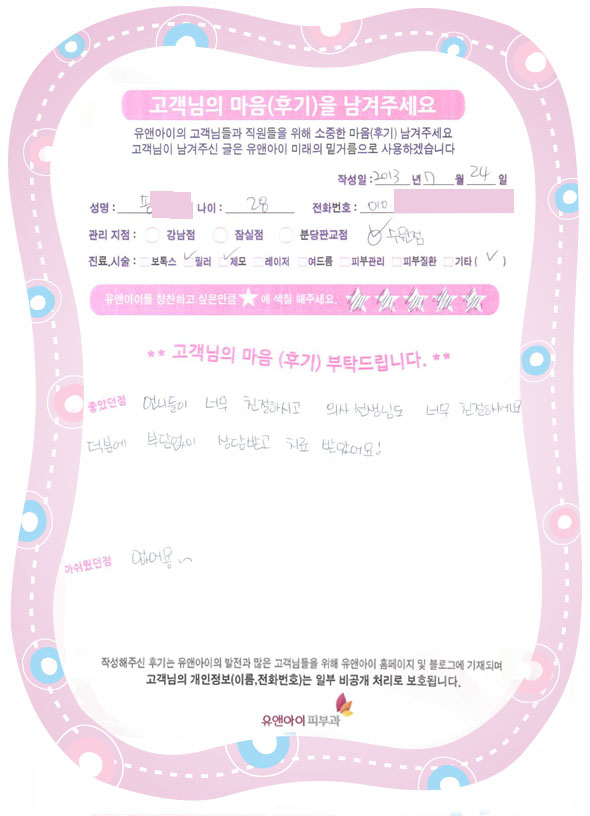 고객님의 마음(후기)을 남겨주세요
유앤아이의 고객님들과 직원들을 위해 소중한 마음(후기) 남겨주세요
고객님이 남겨주신 글은 유앤아이 미래의 밑거름으로 사용하겠습니다
작성일 : 2013 년 7 월 24 일
성명 : 나이 : 28 전화번호 : 010.
관리 지점 : 강남점 잠실점 분당판교점 수원점
진료,시술 : 보톡스 필러 제모 레이저 여드름 피부관리 피부질환 기타 ( )
유앤아이를 칭찬하고 싶은만큼 ★ 에 색칠 해주세요.
** 고객님의 마음 (후기) 부탁드립니다. **
좋았던점 언니들이 너무 친절하시고 의사 선생님도 너무 친절하세요
덕분에 부담없이 상담받고 치료 받았어요!
아쉬웠던점 없어용~
작성해주신 후기는 유앤아이의 발전과 많은 고객님들을 위해 유앤아이 홈페이지 및 블로그에 기재되며
고객님의 개인정보(이름,전화번호)는 일부 비공개 처리로 보호됩니다.
유앤아이 피부과